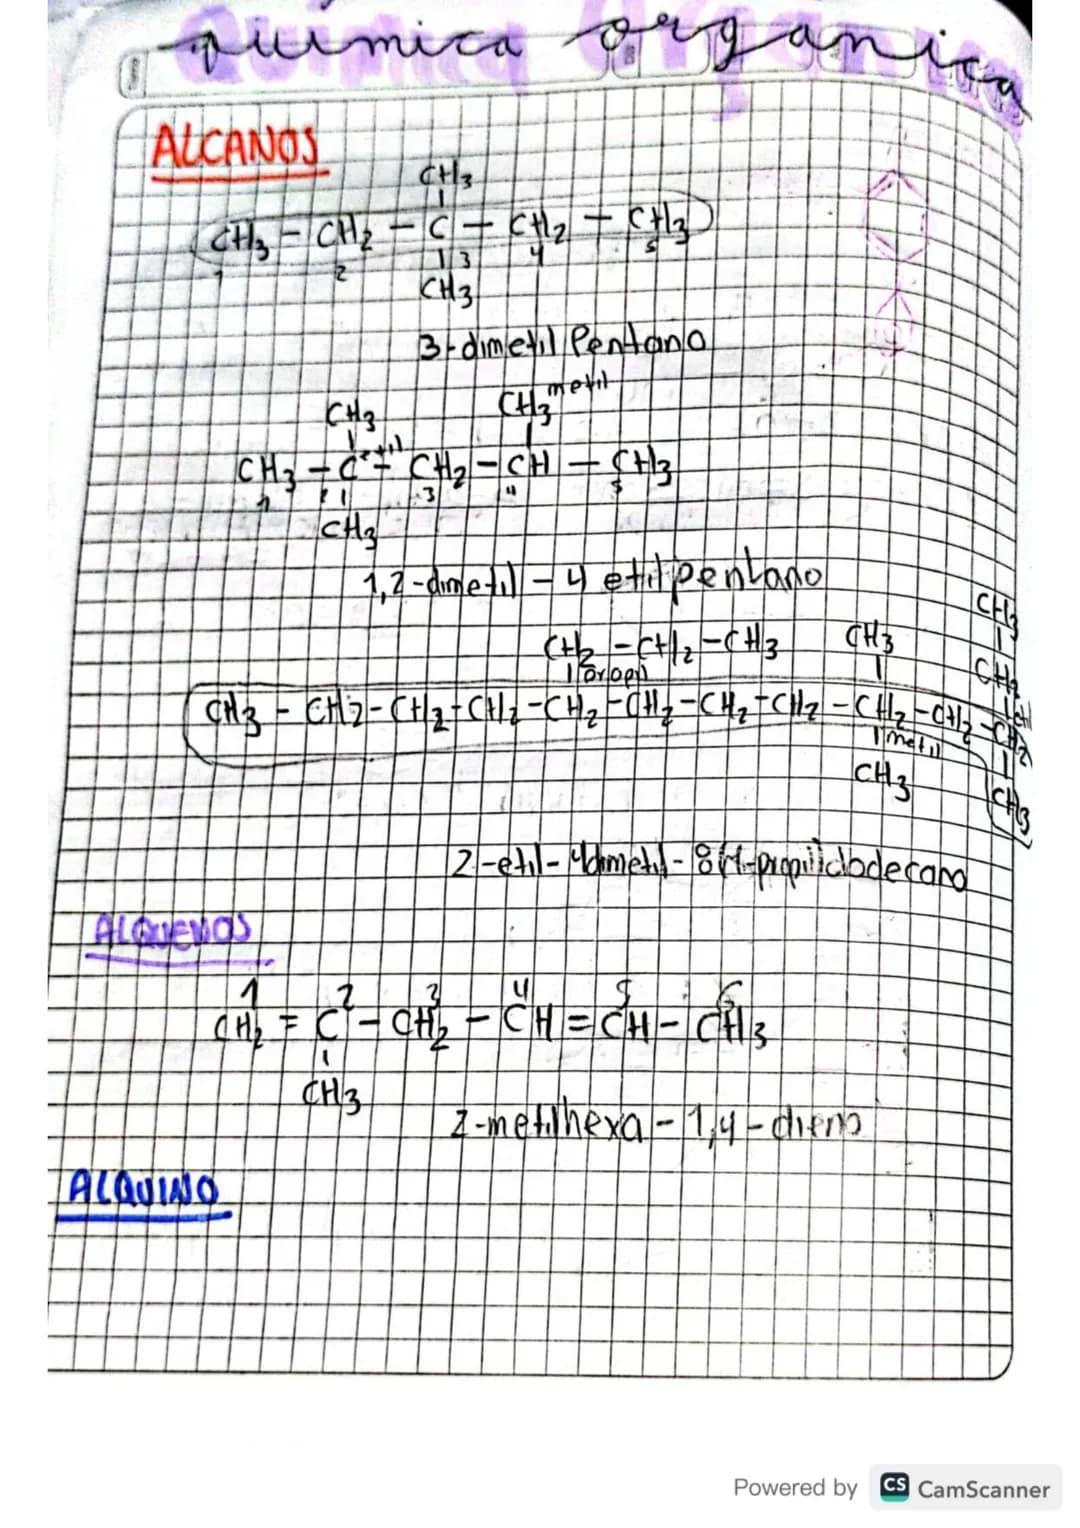 química organica
ALCANOS
CH3
CH3 - CH2 - C - CH2 - CH3
1 2 3 4 5
CH3
3-dimetil Pentano
metil
CH3 CH3
CH3 - C - CH2 - CH - CH3
1 2 3 4 5
CH3
1,2-dimetil - 4 etilpentano
CH3
CH2 - CH2 - CH3 CH3
propil CH2
CH3 - CH2 - CH2 - CH2 - CH2 - CH2 - CH2 - CH2 - CH2 - CH2 - CH2
metil
CH3 CH3
2-etil- 4dimetil- 8 propil dodecano
ALQUENOS
1 2 3 4 5 6
CH2 = C - CH2 - CH = CH - CH3
CH3
2-metilhexa - 1,4 - dieno
ALQUINO
Powered by CS CamScanner